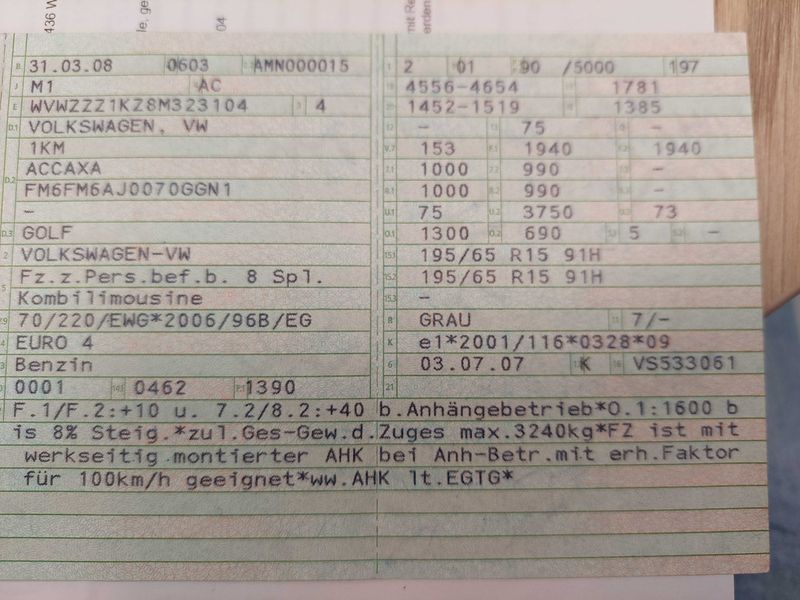 436 W
le, ge
04
mit Re
erden
B 31.03.08 0603 AMN000015
J M1 AC
E WVWZZZ1KZ8M323104 3 4
D.1 VOLKSWAGEN, VW
1KM
D.2 ACCAXA
FM6FM6AJ0070GGN1
–
D.3 GOLF
2 VOLKSWAGEN-VW
5 Fz.z.Pers.bef.b. 8 Spl.
Kombilimousine
V.9 70/220/EWG*2006/96B/EG
EURO 4
P.3 Benzin
0001 14.1 0462 P.1 1390
L 2 01 90 /5000 197
18 4556-4654 1781
20 1452-1519 1385
12 – 13 75 Q –
V.7 153 F.1 1940 F.2 1940
7.1 1000 7.2 990 7.3 –
8.1 1000 8.2 990 8.3 –
U.1 75 U.2 3750 U.3 73
O.1 1300 O.2 690 S.1 5 S.2 –
15.1 195/65 R15 91H
15.2 195/65 R15 91H
15.3 –
R GRAU 11 7/–
K e1*2001/116*0328*09
6 03.07.07 17 K 16 VS533061
21
F.1/F.2:+10 u. 7.2/8.2:+40 b.Anhängebetrieb*O.1:1600 b
is 8% Steig.*zul.Ges-Gew.d.Zuges max.3240kg*FZ ist mit
werkseitig montierter AHK bei Anh-Betr.mit erh.Faktor
für 100km/h geeignet*ww.AHK lt.EGTG*